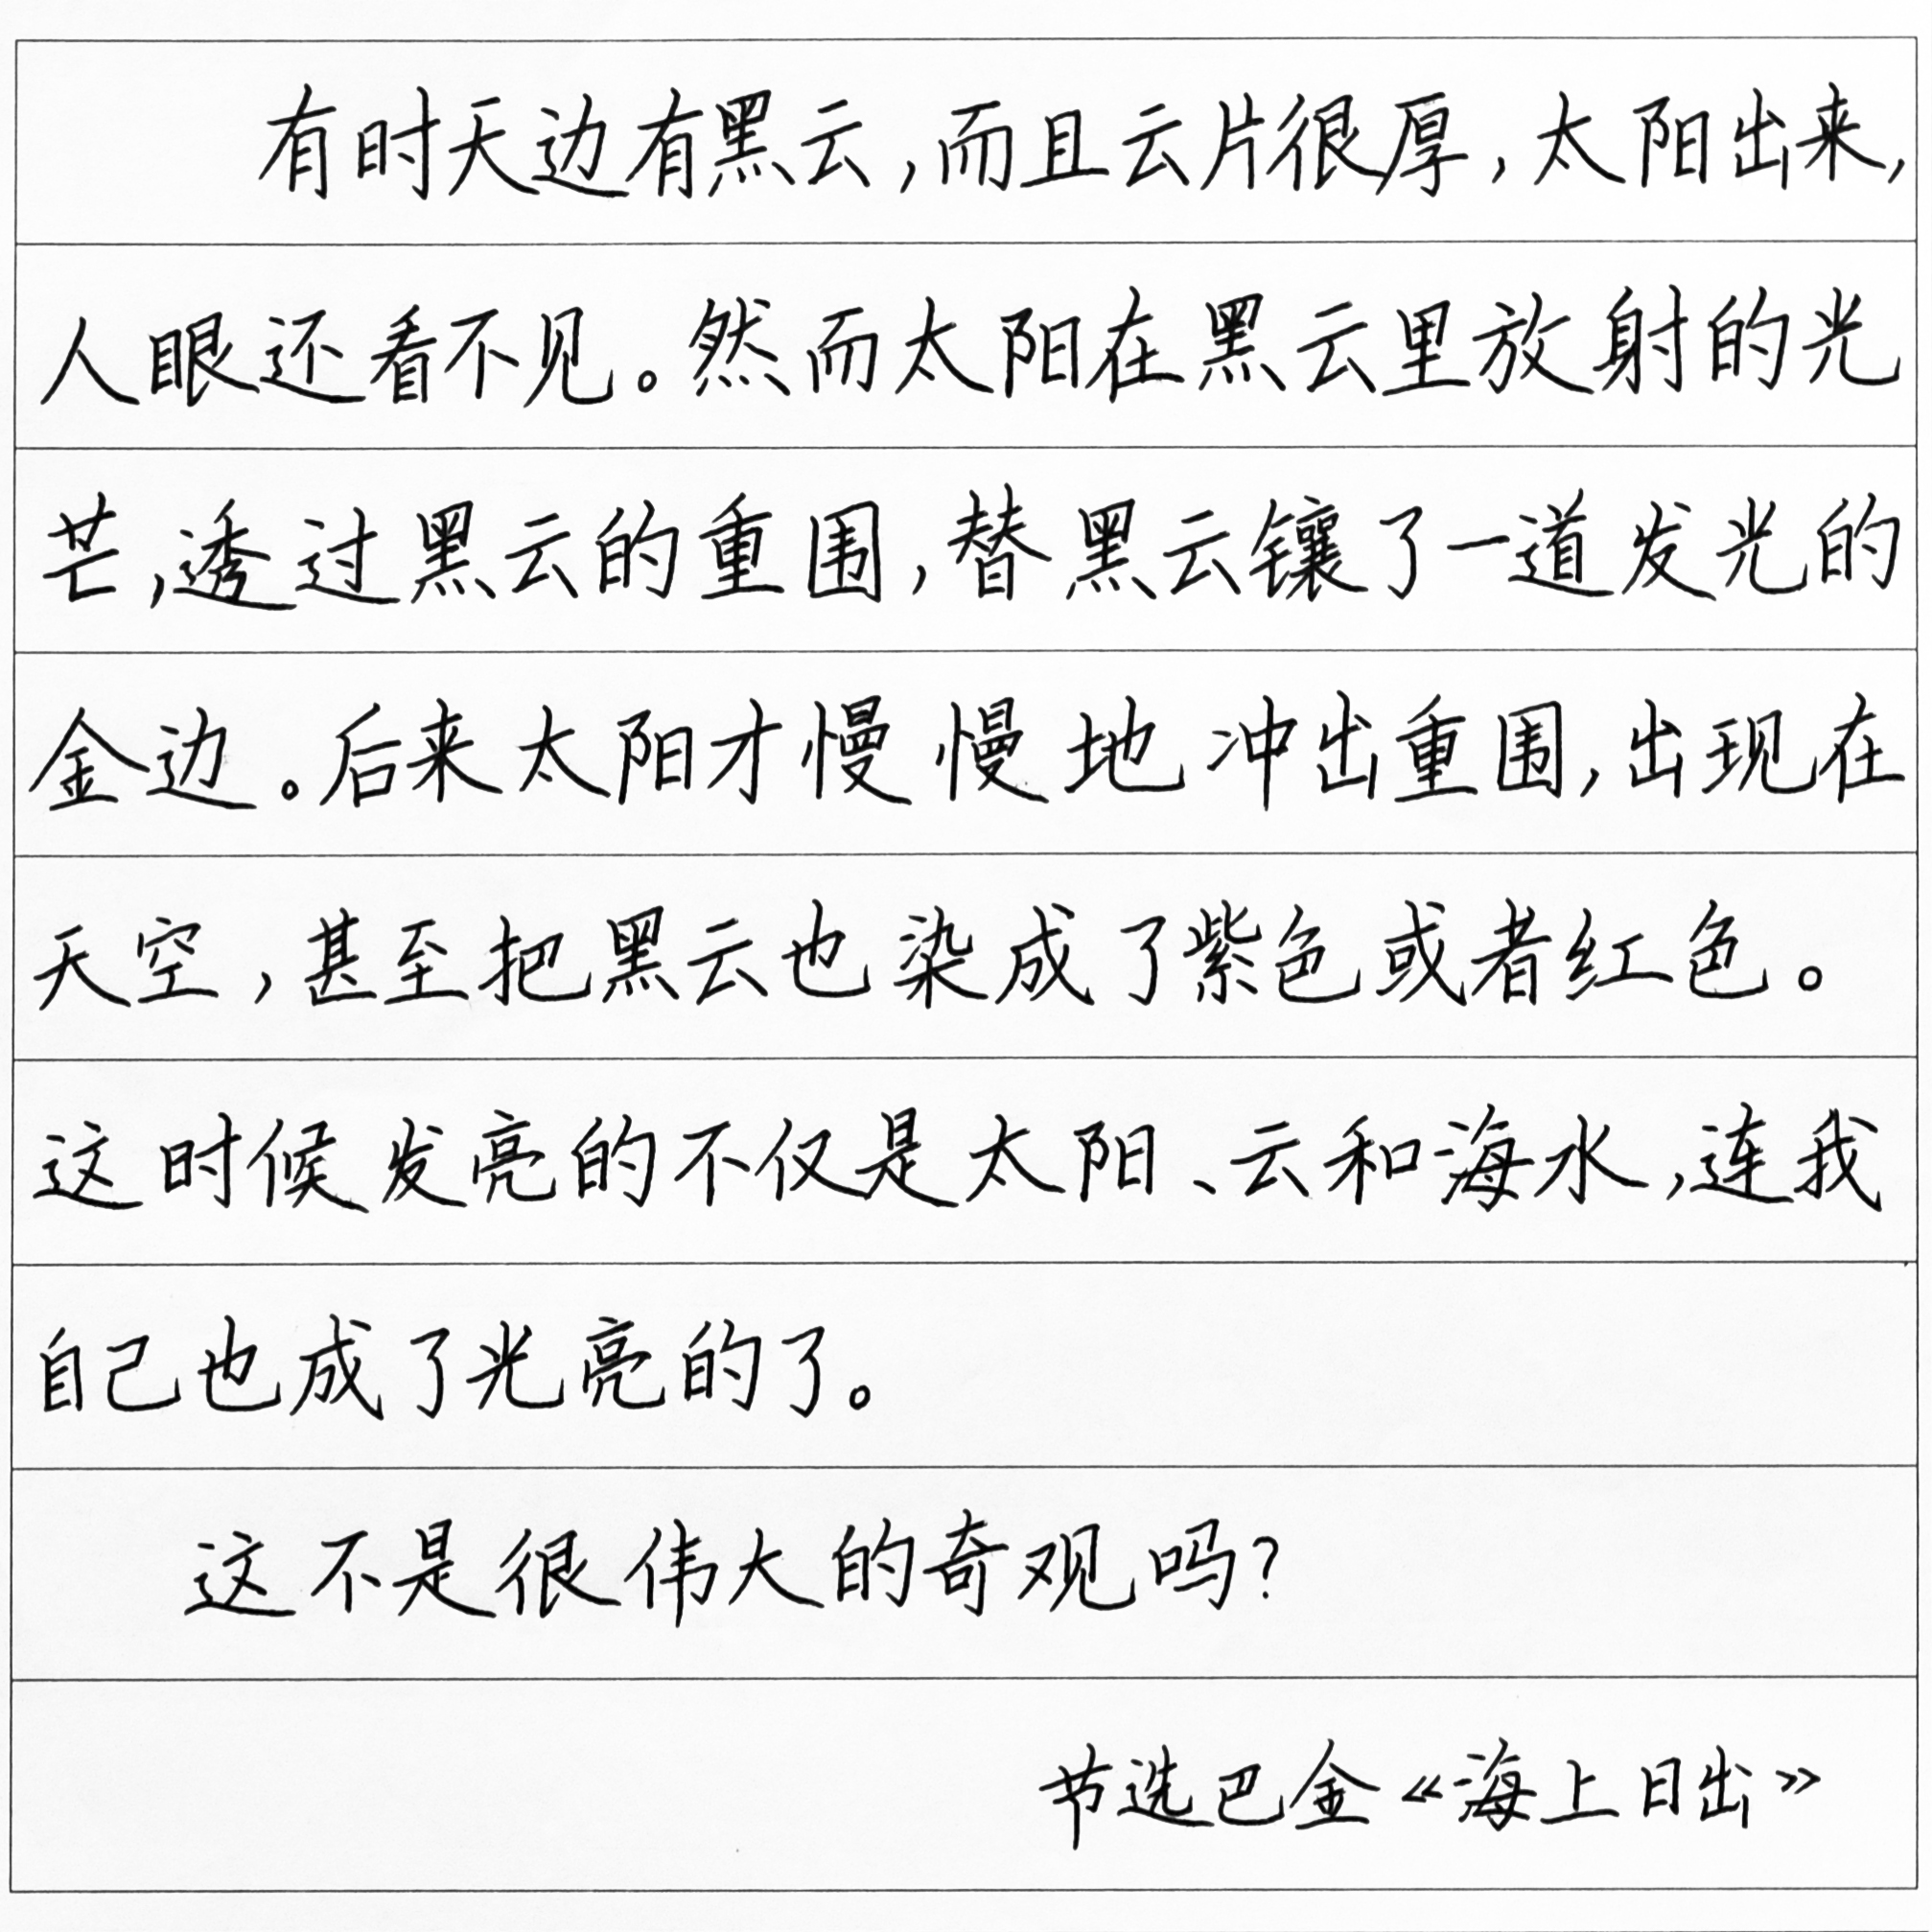 有时天边有黑云,而且云片很厚,太阳出来,
人眼还看不见。然而太阳在黑云里放射的光
芒,透过黑云的重围,替黑云镶了一道发光的
金边。后来太阳才慢慢地冲出重围,出现在
天空,甚至把黑云也染成了紫色或者红色。
这时候发亮的不仅是太阳、云和海水,连我
自己也成了光亮的了。
这不是很伟大的奇观吗?
节选巴金《海上日出》